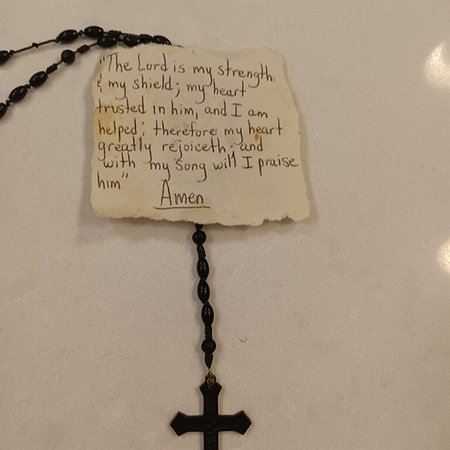 "The Lord is my strength
& my shield; my heart
trusted in him, and I am
helped; therefore my heart
greatly rejoiceth; and
with my song will I praise
him"
Amen